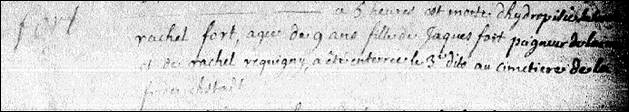 fort
a 5 heures est morte dhydropisie
rachel fort, agee de 9 ans fille de Jaques fort peigneur de
et de rachel requigny, a ètè enterrèe le 3e dito au cimetiere de la
friderichstadt